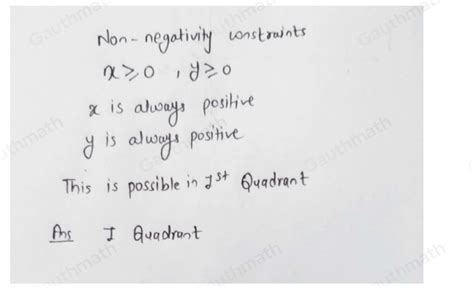 Non-negativity constraints
x ≥ 0 , y ≥ 0
x is always positive
y is always positive
This is possible in Ist Quadrant
Ans I Quadrant